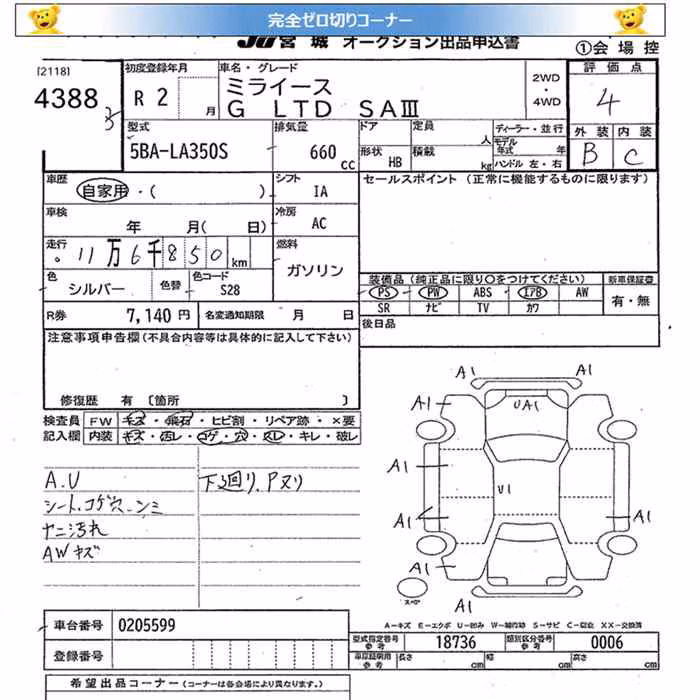 完全ゼロ切りコーナー
JU 宮 城 オークション出品申込書
①会 場 控
[2118]
4388
初度登録年月
R 2 月
車名・グレード
ミライース
G LTD SAⅢ
2WD
・
4WD
評 価 点
4
型式
5BA-LA350S
排気量
660 cc
ドア
定員 人
ディーラー・並行
モデル年式 年
形状 HB
積載 kg
ハンドル 左・右
外 装 内 装
B C
車歴
自家用・( )
シフト
IA
セールスポイント (正常に機能するものに限ります)
車検
年 月( 日)
冷房
AC
走行
11万6千850km
燃料
ガソリン
色
シルバー
色替
色コード
S28
装備品 (純正品に限り○をつけてください)
新車保証書
PS PW ABS エアB AW
有・無
SR ナビ TV カワ
R券 7,140 円
名変通知期限 月 日
後日品
注意事項申告欄(不具合内容等は具体的に記入して下さい)
修復歴 有 〔箇所 〕
検査員 FW キズ・飛石・ヒビ割・リペア跡・×要
記入欄 内装 キズ・汚レ・コゲ・穴・スレ・キレ・破レ
A.U
下廻り.Pヌリ
シート.コゲ穴.シミ
ヤニ汚れ
AWキズ
A1 A1
A1 UA1 A1
A1
U1
A1 A1
A1 A1
A1
スペア
A-キズ E-エクボ U-凹み W-補修跡 S-サビ C-腐蝕 XX-交換済
車台番号 0205599
型式指定番号 参考 18736
類別区分番号 参考 0006
登録番号
車庫証明用 参考 長さ cm 幅 cm 高さ cm
希望出品コーナー (コーナーは各会場により異なります。)